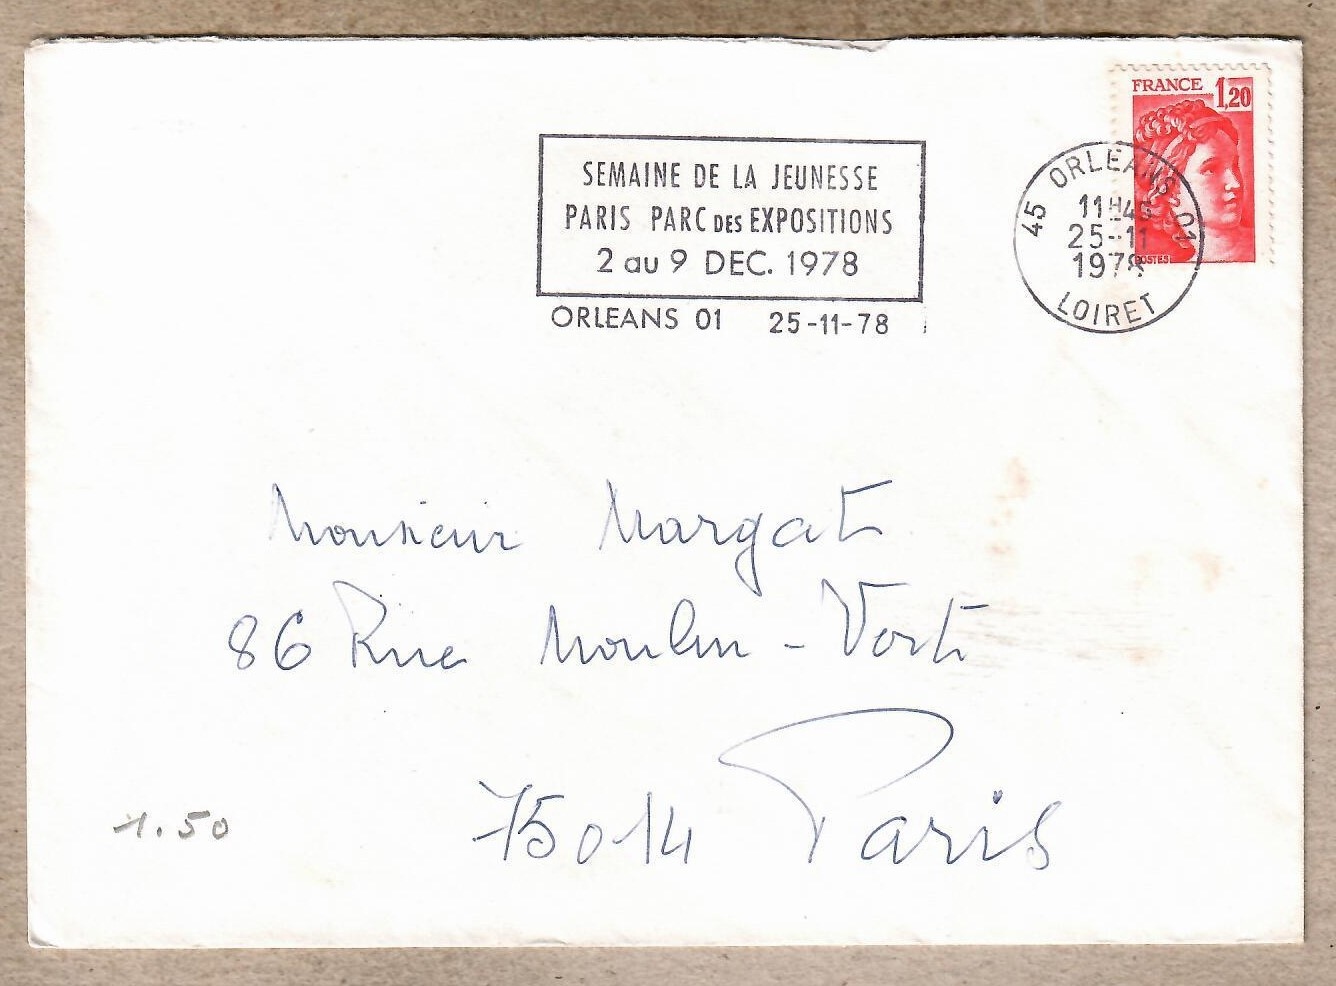 FRANCE 1,20
POSTES
SEMAINE DE LA JEUNESSE
PARIS PARC DES EXPOSITIONS
2 au 9 DEC. 1978
ORLEANS 01 25-11-78
45 ORLEANS 01
11H45
25-11
1978
LOIRET
Monsieur Margat
86 Rue Moulin-Vert
75014 Paris
1.50